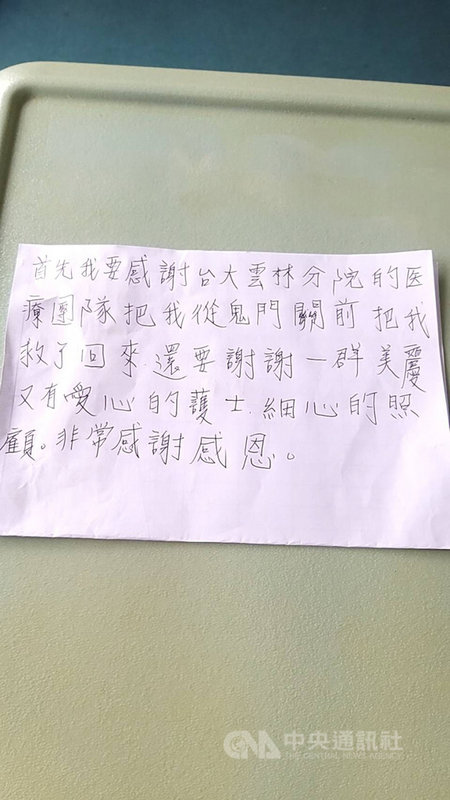 首先我要感謝台大雲林分院的医
療團隊把我從鬼門關前把我
救了回來.還要謝謝一群美慶
又有愛心的護士.細心的照
顧。非常感謝感恩。
CNA 中央通訊社
THE CENTRAL NEWS AGENCY